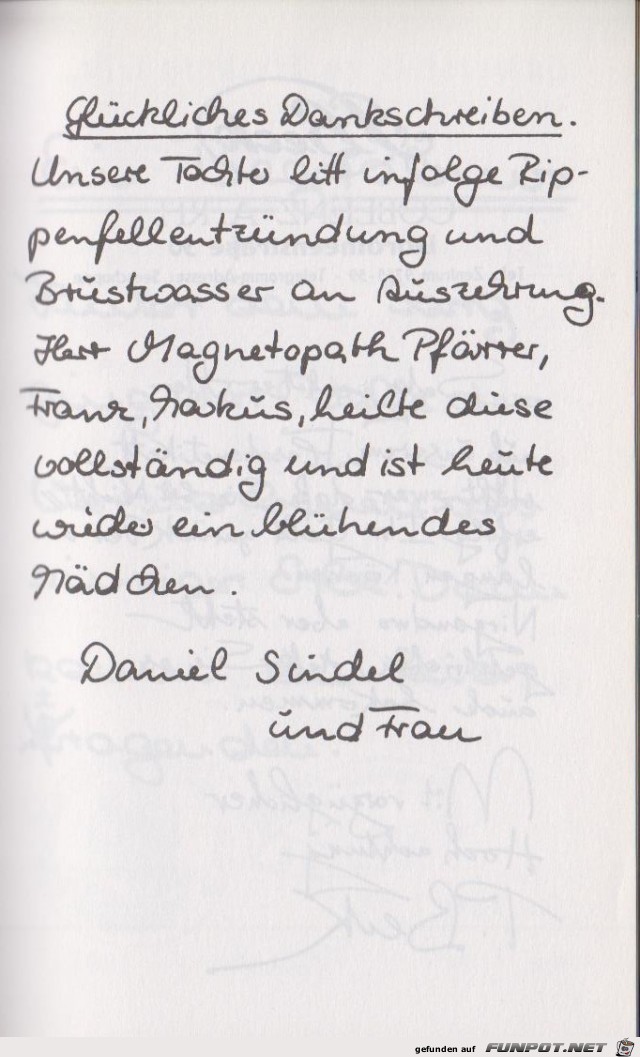 Glückliches Dankschreiben.
Unsere Tochter litt infolge Rip-
penfellentzündung und
Brustwasser an Auszehrung.
Herr Magnetopath Pfarrer,
Franz, Markus, heilte diese
vollständig und ist heute
wieder ein blühendes
Mädchen.
Daniel Sindel
und Frau
gefunden auf FUNPOT.NET